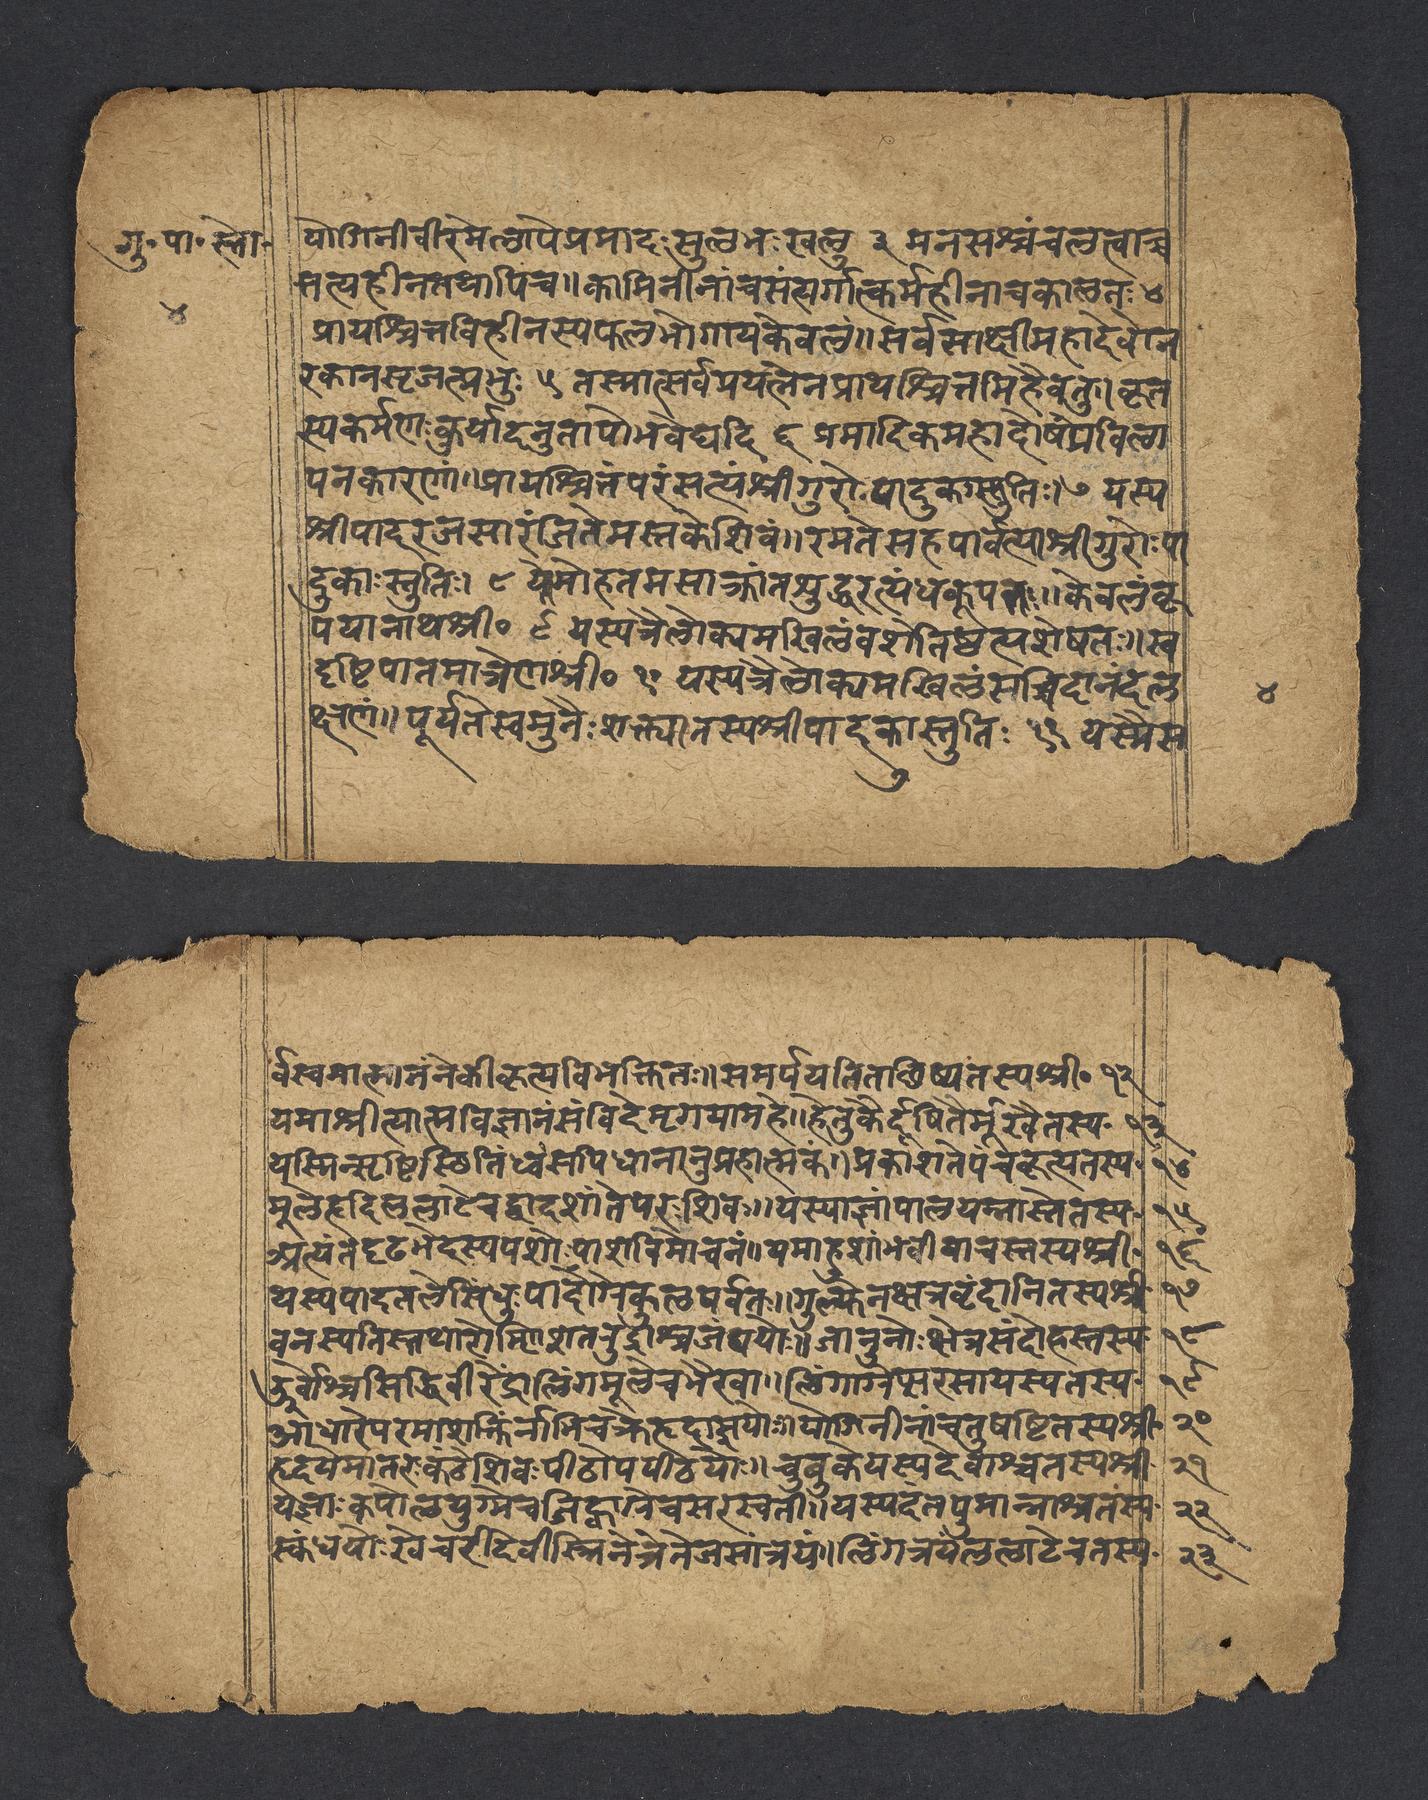 गु॰पा॰स्तो॰
४
योगिनीवीरमेलापेप्रमादःसुलभःखलु ३ मनसश्चंचलत्वाच्च
सत्यहीनतयापिच॥कामिनीनांचसंसर्गात्कर्महीनाचकालतः ४
प्रायश्चित्तविहीनस्यफलभोगायकेवलं॥सर्वसाक्षीमहादेवोन
रकानसृजत्प्रभुः ५ तस्मात्सर्वप्रयत्नेनप्रायश्चित्तमिहैवतु।कृत
स्यकर्मणःकुर्यादनुतापोभवेद्यदि ६ प्रमादिकमहादोषप्रविला
पनकारणं॥प्रायश्चित्तंपरंसत्यंश्रीगुरोःपादुकास्तुतिः।७ यस्य
श्रीपादरजसारंजितेमस्तकेशिवं॥रमतेसहपार्वत्याश्रीगुरोःपा
दुकाःस्तुतिः। ८ यैमोहतमसाक्रांतमुद्धरत्यंधकूपतः॥केवलंकृ
पयानाथश्री॰ ९ यस्यत्रैलोक्यमखिलंवशेतिष्ठत्यशेषतः॥स्व
दृष्टिपातमात्रेणश्री॰ १॰ यस्यत्रैलोक्यमखिलंसच्चिदानंदल
क्षणं॥पूर्यतेस्वमुनैःशक्त्यातस्यश्रीपादुकास्तुतिः ११ यस्मैस
४
र्वस्वमात्मानंनेकीकृत्यविभक्तितः॥समर्पयतितच्छिष्यंतस्यश्री॰ १२
यमाश्रीत्यात्मविज्ञानंसंविदेमृगयामहे॥हेतुकैर्दूषितैर्मूर्खैतस्य॰ १३
यस्मिन्सृष्टिस्थितिंध्वंसपिधानानुग्रहात्मकं॥प्रकाशतेपंचकृत्यंतस्य॰ १४
मूलेहृदिललाटेचद्वादशांतेपरःशिवः॥यस्याज्ञांपालयन्नास्तेतस्य॰ १५
अत्यंतदृढभेदस्यपशोःपाशविमोचनं॥यमाहुशांभवीवाचस्तस्यश्री॰ १६
यस्यपादतलेसिंधुःपादाग्रेकुलपर्वतः॥गुल्फेनक्षत्रवृंदानितस्यश्री॰ १७
वनस्पतिस्तथारोम्णिशतरुद्राश्चजंघयोः॥जानुनोःक्षेत्रसंदोहस्तस्य॰ १८
उर्वोश्चसिद्धिवीरेंद्रालिंगमूलेचभैरवा॥लिंगाग्रेप्सरसायस्यतस्य॰ १९
आधारेपरमाशक्तिर्नाभिचक्रेहृदाब्जयोः॥योगिनीनांचतुषष्टितस्यश्री॰ २०
हृदयेमातरःकंठेशिवःपीठोपपीठयोः॥चुबुकेयस्यदेवाश्चतस्यश्री॰ २१
यज्ञाःकपोलयुग्मेचजिह्वाग्रेचसरस्वती॥यस्यदंतेपुमान्नाश्चतस्य॰ २२
स्कंधयोःखेचरीदेवीस्त्रिनेत्रेतेजसांत्रयं॥लिंगत्रयंललाटेचतस्य॰ २३